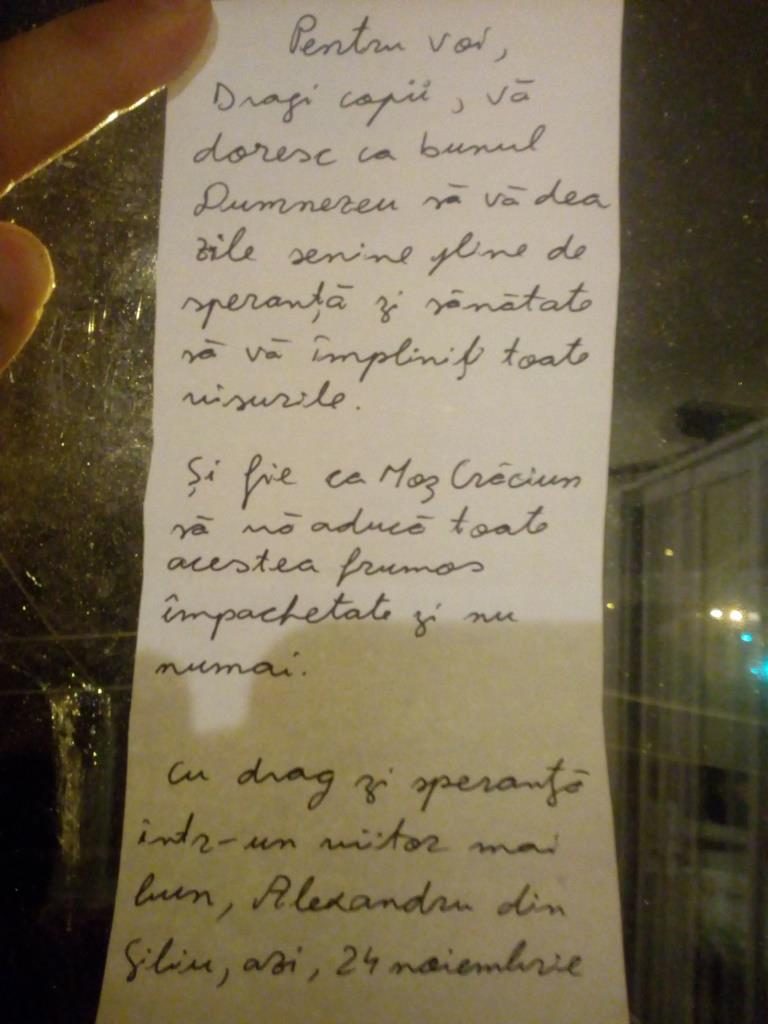 Pentru voi,
Dragi copii, vă
doresc ca bunul
Dumnezeu să vă dea
zile senine pline de
speranță și sănătate
să vă împliniți toate
visurile.
Și fie ca Moș Crăciun
să vă aducă toate
acestea frumos
împachetate și nu
numai.
Cu drag și speranță
într-un viitor mai
bun, Alexandru din
Giliu, azi, 24 noiembrie